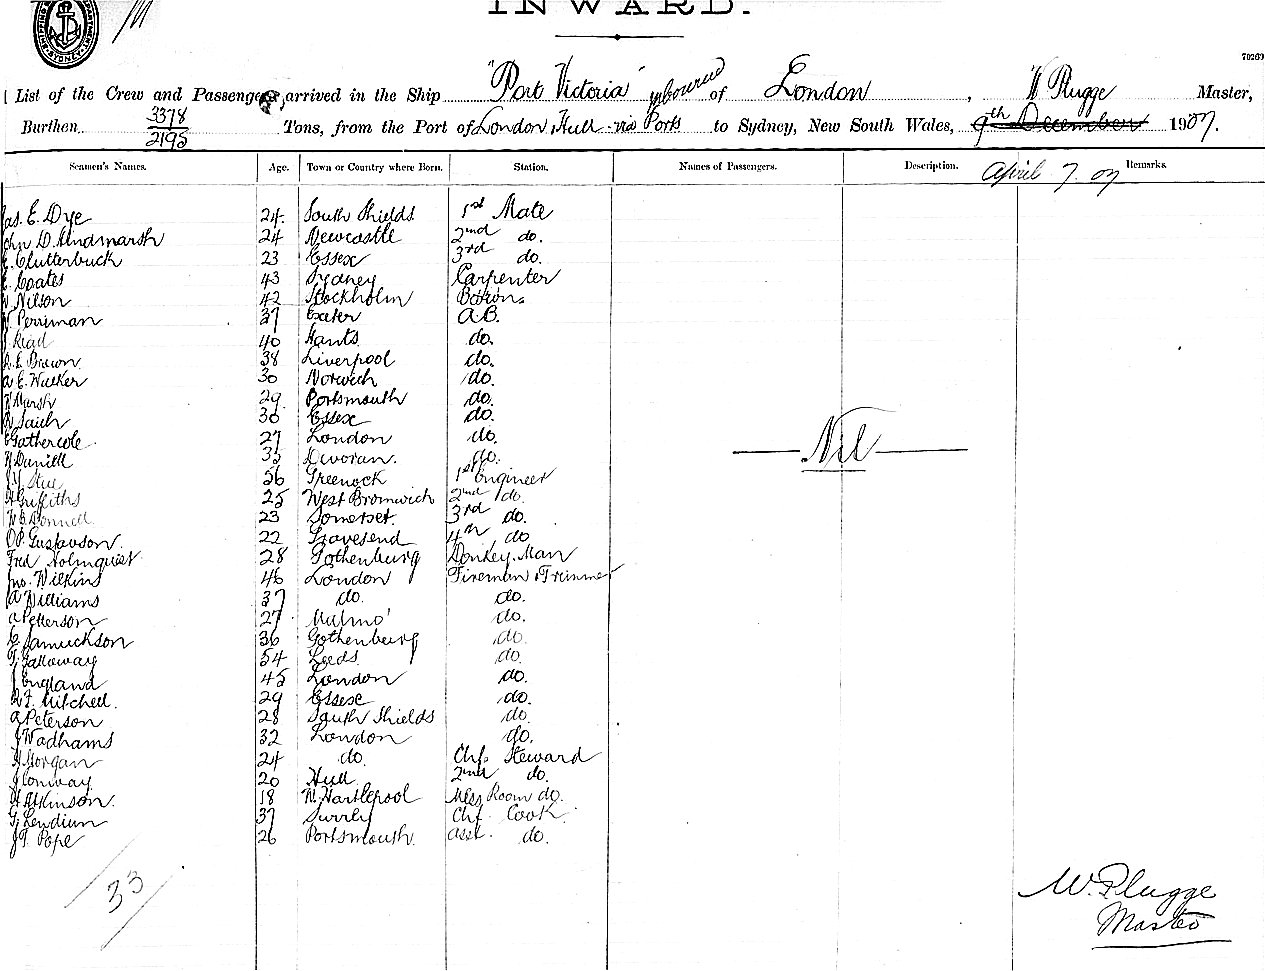 INWARD.
70269
List of the Crew and Passengers, arrived in the Ship "Port Victoria" of London, W Plugge Master,
Burthen 3378 / 2195 Tons, from the Port of London, Hull via Ports to Sydney, New South Wales, 9th December 1907.
April 7. 07
Seamen's Names. Age. Town or Country where Born. Station. Names of Passengers. Description. Remarks.
Jas. E. Dye 24. South Shields 1st Mate
John D. Hindmarsh 24 Newcastle 2nd do.
Clutterbuck 23 Essex 3rd do.
E. Coates 43 Sydney Carpenter
Nilson 42 Stockholm Bosun
W. Perriman 37 Exeter A.B.
Read 40 Hants. do.
Brown 38 Liverpool do.
E. Walker 30 Norwich do.
Marsh 29 Portsmouth do.
Saich 36 Essex do.
Gathercole 27 London do.
Daniell 35 Devoran. do.
56 Greenock 1st Engineer
Griffiths 25 West Bromwich 2nd do.
Donnell 23 Somerset. 3rd do.
Gustavson. 22 Gravesend 4th do.
Fred Holmquist 28 Gothenburg Donkey Man
Jno. Wilkins 46 London Fireman & Trimmer
A Williams 37 do. do.
A Petterson 27 Malmo' do.
Samuckson 36 Gothenburg do.
T. Galloway 54 Leeds. do.
J England 45 London do.
Mitchell. 29 Essex do.
A Peterson 28 South Shields do.
J Wadhams 32 London do.
H Morgan 24 do. Chf. Steward
J Conway 20 Hull 2nd do.
H Atkinson. 18 W. Hartlepool Mess Room do.
G. Lendium 37 Surrey Chf. Cook
J T. Pope 26 Portsmouth. Asst. do.
Nil
33
W. Plugge
Master